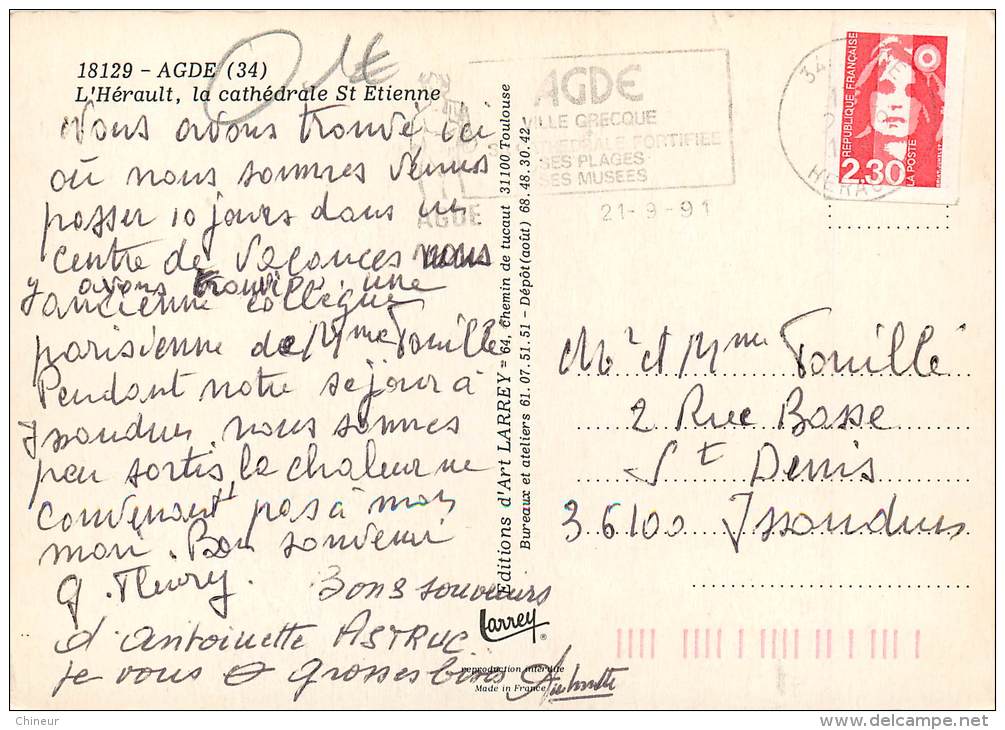 1€
18129 - AGDE (34)
L'Hérault, la cathédrale St Etienne
Nous avons trouvé ici
où nous sommes venus
passer 10 jours dans un
centre de vacances nous
y avons trouvé une
ancienne collègue
parisienne de Mme Touillé
Pendant notre séjour à
Issoudun nous sommes
peu sortis, la chaleur ne
convenant pas à mon
mari. Bon souvenir
G. Fleury.
Bons souvenirs
d'Antoinette ASTRUC
je vous grosses bises
Antoinette
Editions d'Art LARREY = 64, chemin de tucaut 31100 Toulouse
Bureaux et ateliers 61.07.51.51 - Dépôt (août) 68.48.30.42
Larrey ®
reproduction interdite
Made in France
AGDE
AGDE
VILLE GRECQUE
SA CATHEDRALE FORTIFIEE
SES PLAGES
SES MUSEES
21-9-91
34
HERAULT
REPUBLIQUE FRANÇAISE
2.30
LA POSTE
Mr et Mme Touillé
2 Rue Basse
St Denis
36100 Issoudun
Chineur
delcampe.net